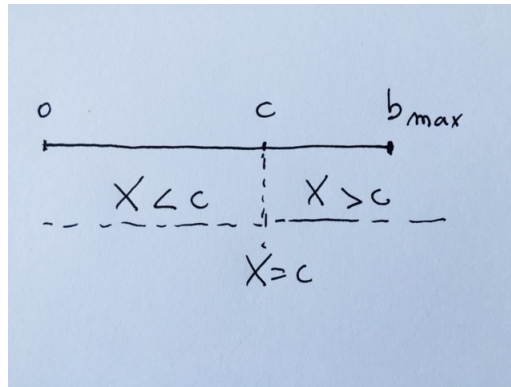 o c b max
X < c X > c
X = c